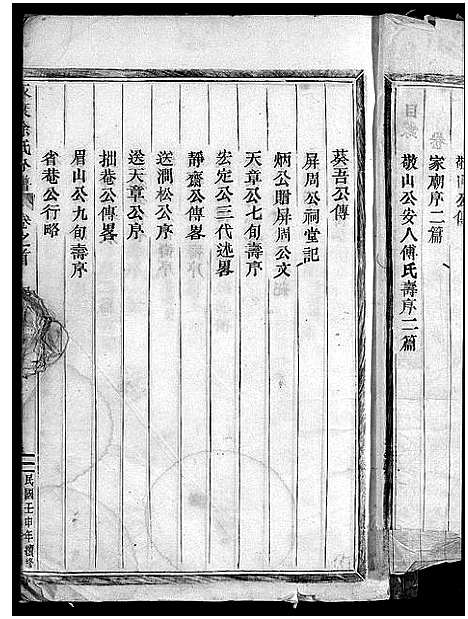 敬山公傳
家廟序二篇
敬山公安人傅氏壽序二篇
葵吾公傳
屏周公祠堂記
炳公贈屏周公文
天章公七旬壽序
宏定公三代述畧
靜齋公傳畧
送澗松公序
送天章公序
拙菴公傳畧
眉山公九旬壽序
省菴公行略
卷之首
民國壬申年續修